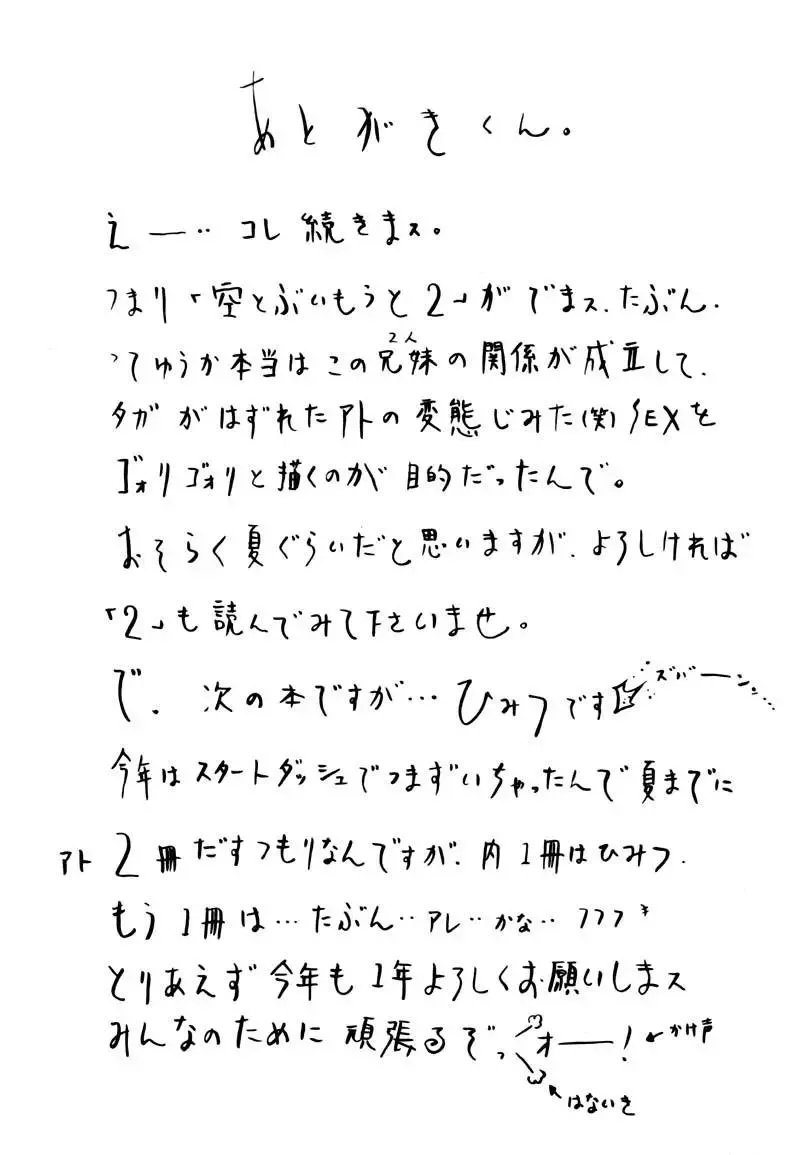 あとがきくん。
えー‥コレ続きまス。
つまり「空とぶいもうと2」がでまス.たぶん.
つてゆうか本当はこの兄妹の関係が成立して.
2人
タガがはずれたアトの変態じみた(笑)SEXを
ゴォリゴォリと描くのが目的だったんで。
おそらく夏ぐらいだと思いますが.よろしければ
「2」も読んでみて下さいませ。
で.次の本ですが…ひみつです
ズバーン。…
今年はスタートダッシュでつまずいちゃったんで夏までに
アト2冊だすつもりなんですが.内1冊はひみつ.
もう1冊は…たぶん‥アレ‥かな‥フフフ
とりあえず今年も1年よろしくお願いしまス
みんなのために頑張るぞっオー!
かけ声
はないき